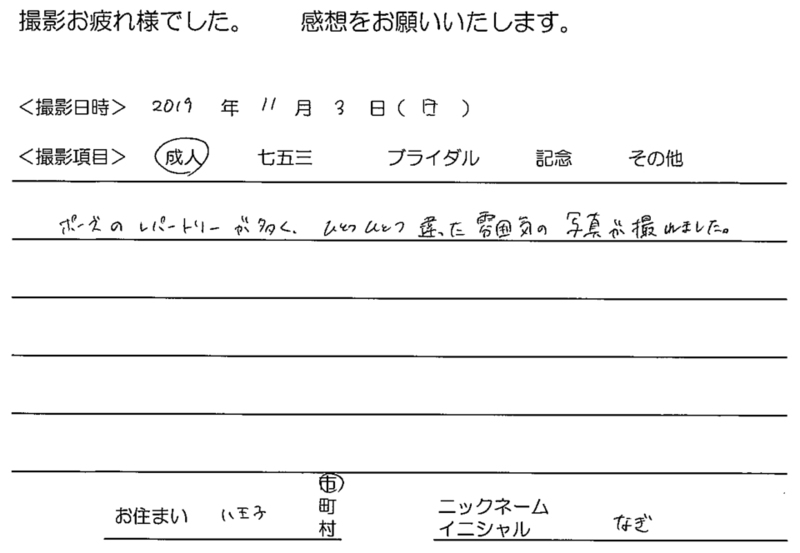 撮影お疲れ様でした。 感想をお願いいたします。
＜撮影日時＞ 2019 年 11 月 3 日（日）
＜撮影項目＞ 成人 七五三 ブライダル 記念 その他
ポーズのレパートリーが多く、ひとつひとつ違った雰囲気の写真が撮れました。
お住まい 八王子 市 町 村
ニックネーム イニシャル なぎ